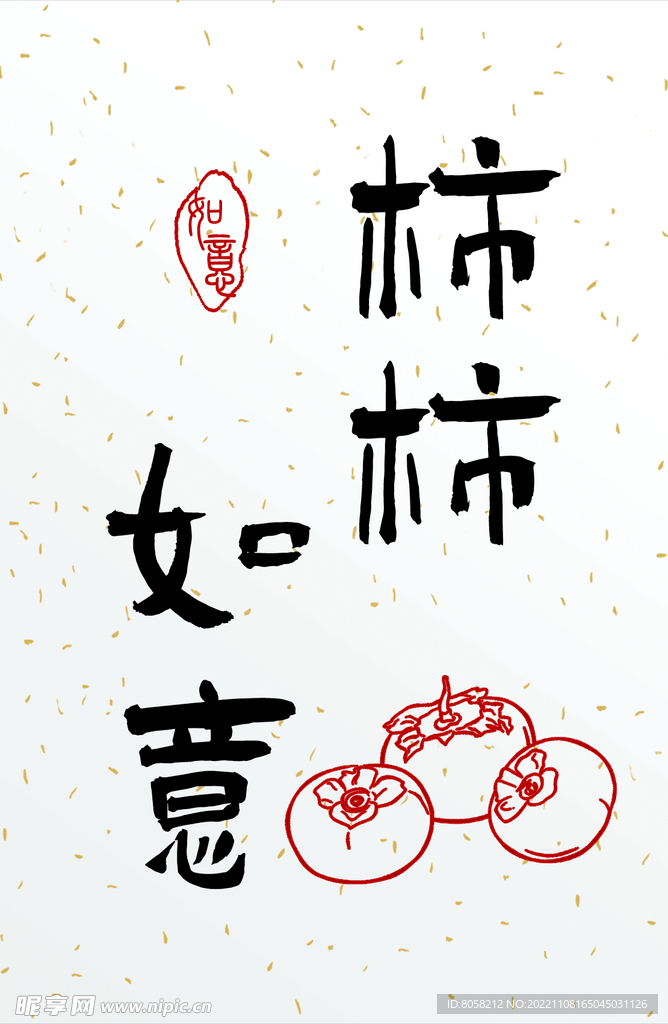 柿柿
如意
如意
昵享网 www.nipic.cn
ID:8058212 NO:20221108165045031126